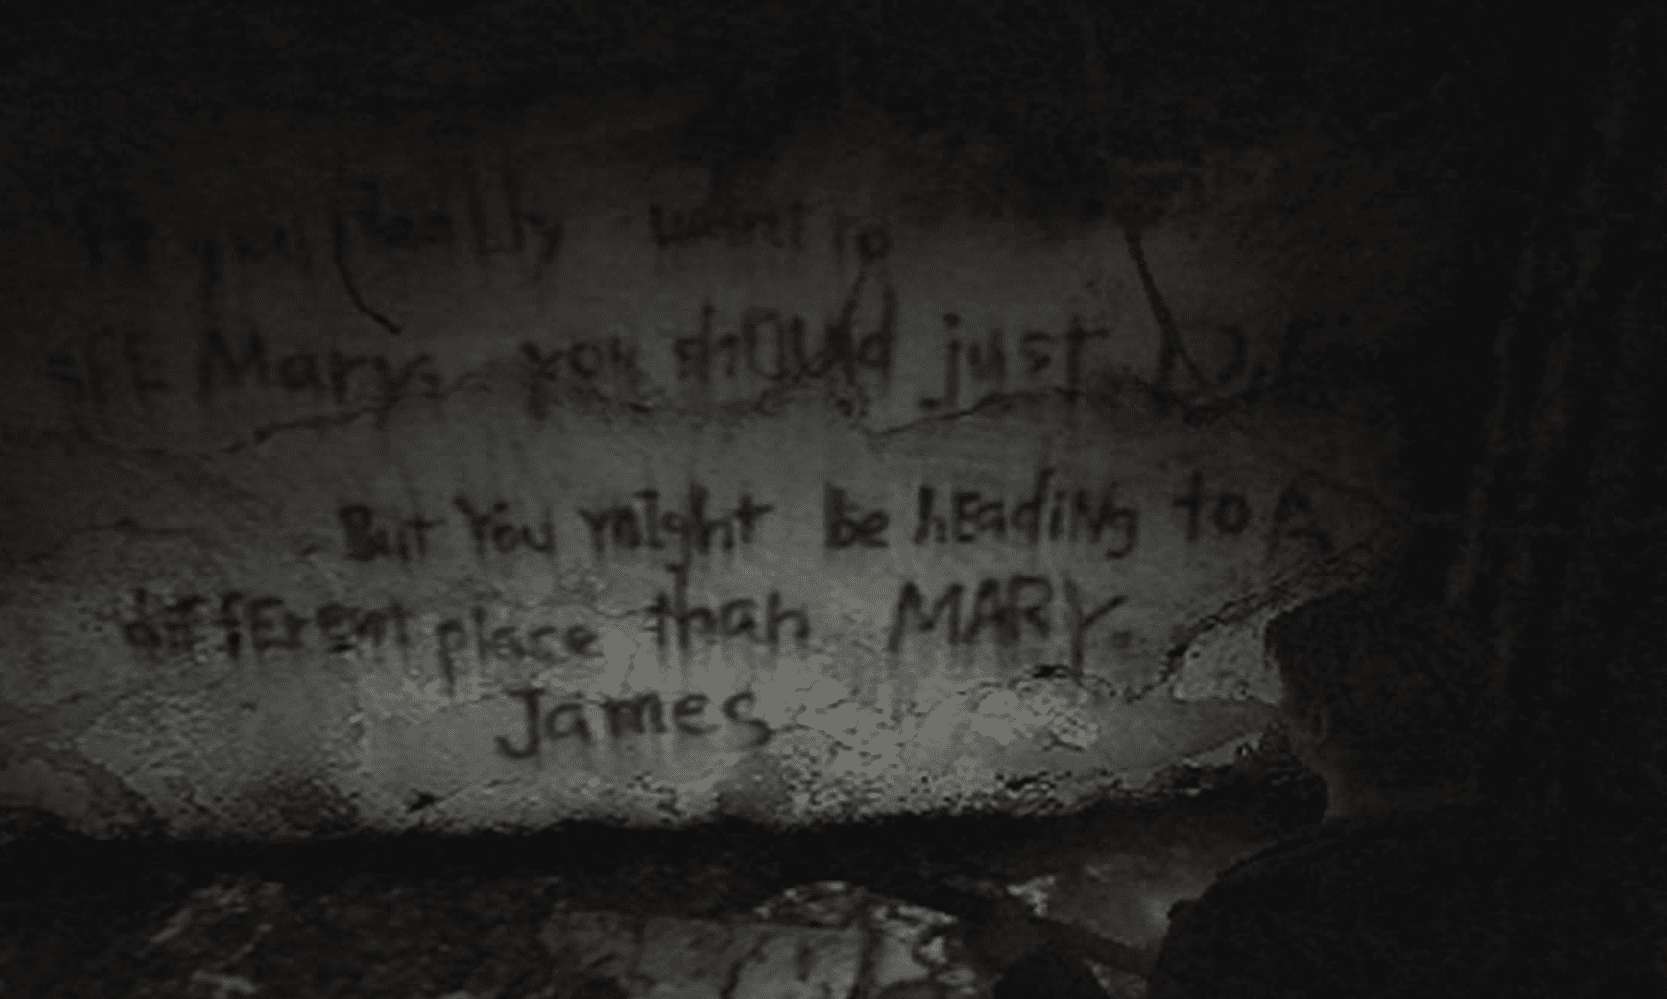 If you Really want to
SEE Mary, you should just
But You might be hEadiNg to A
diffErent place than MARY.
James